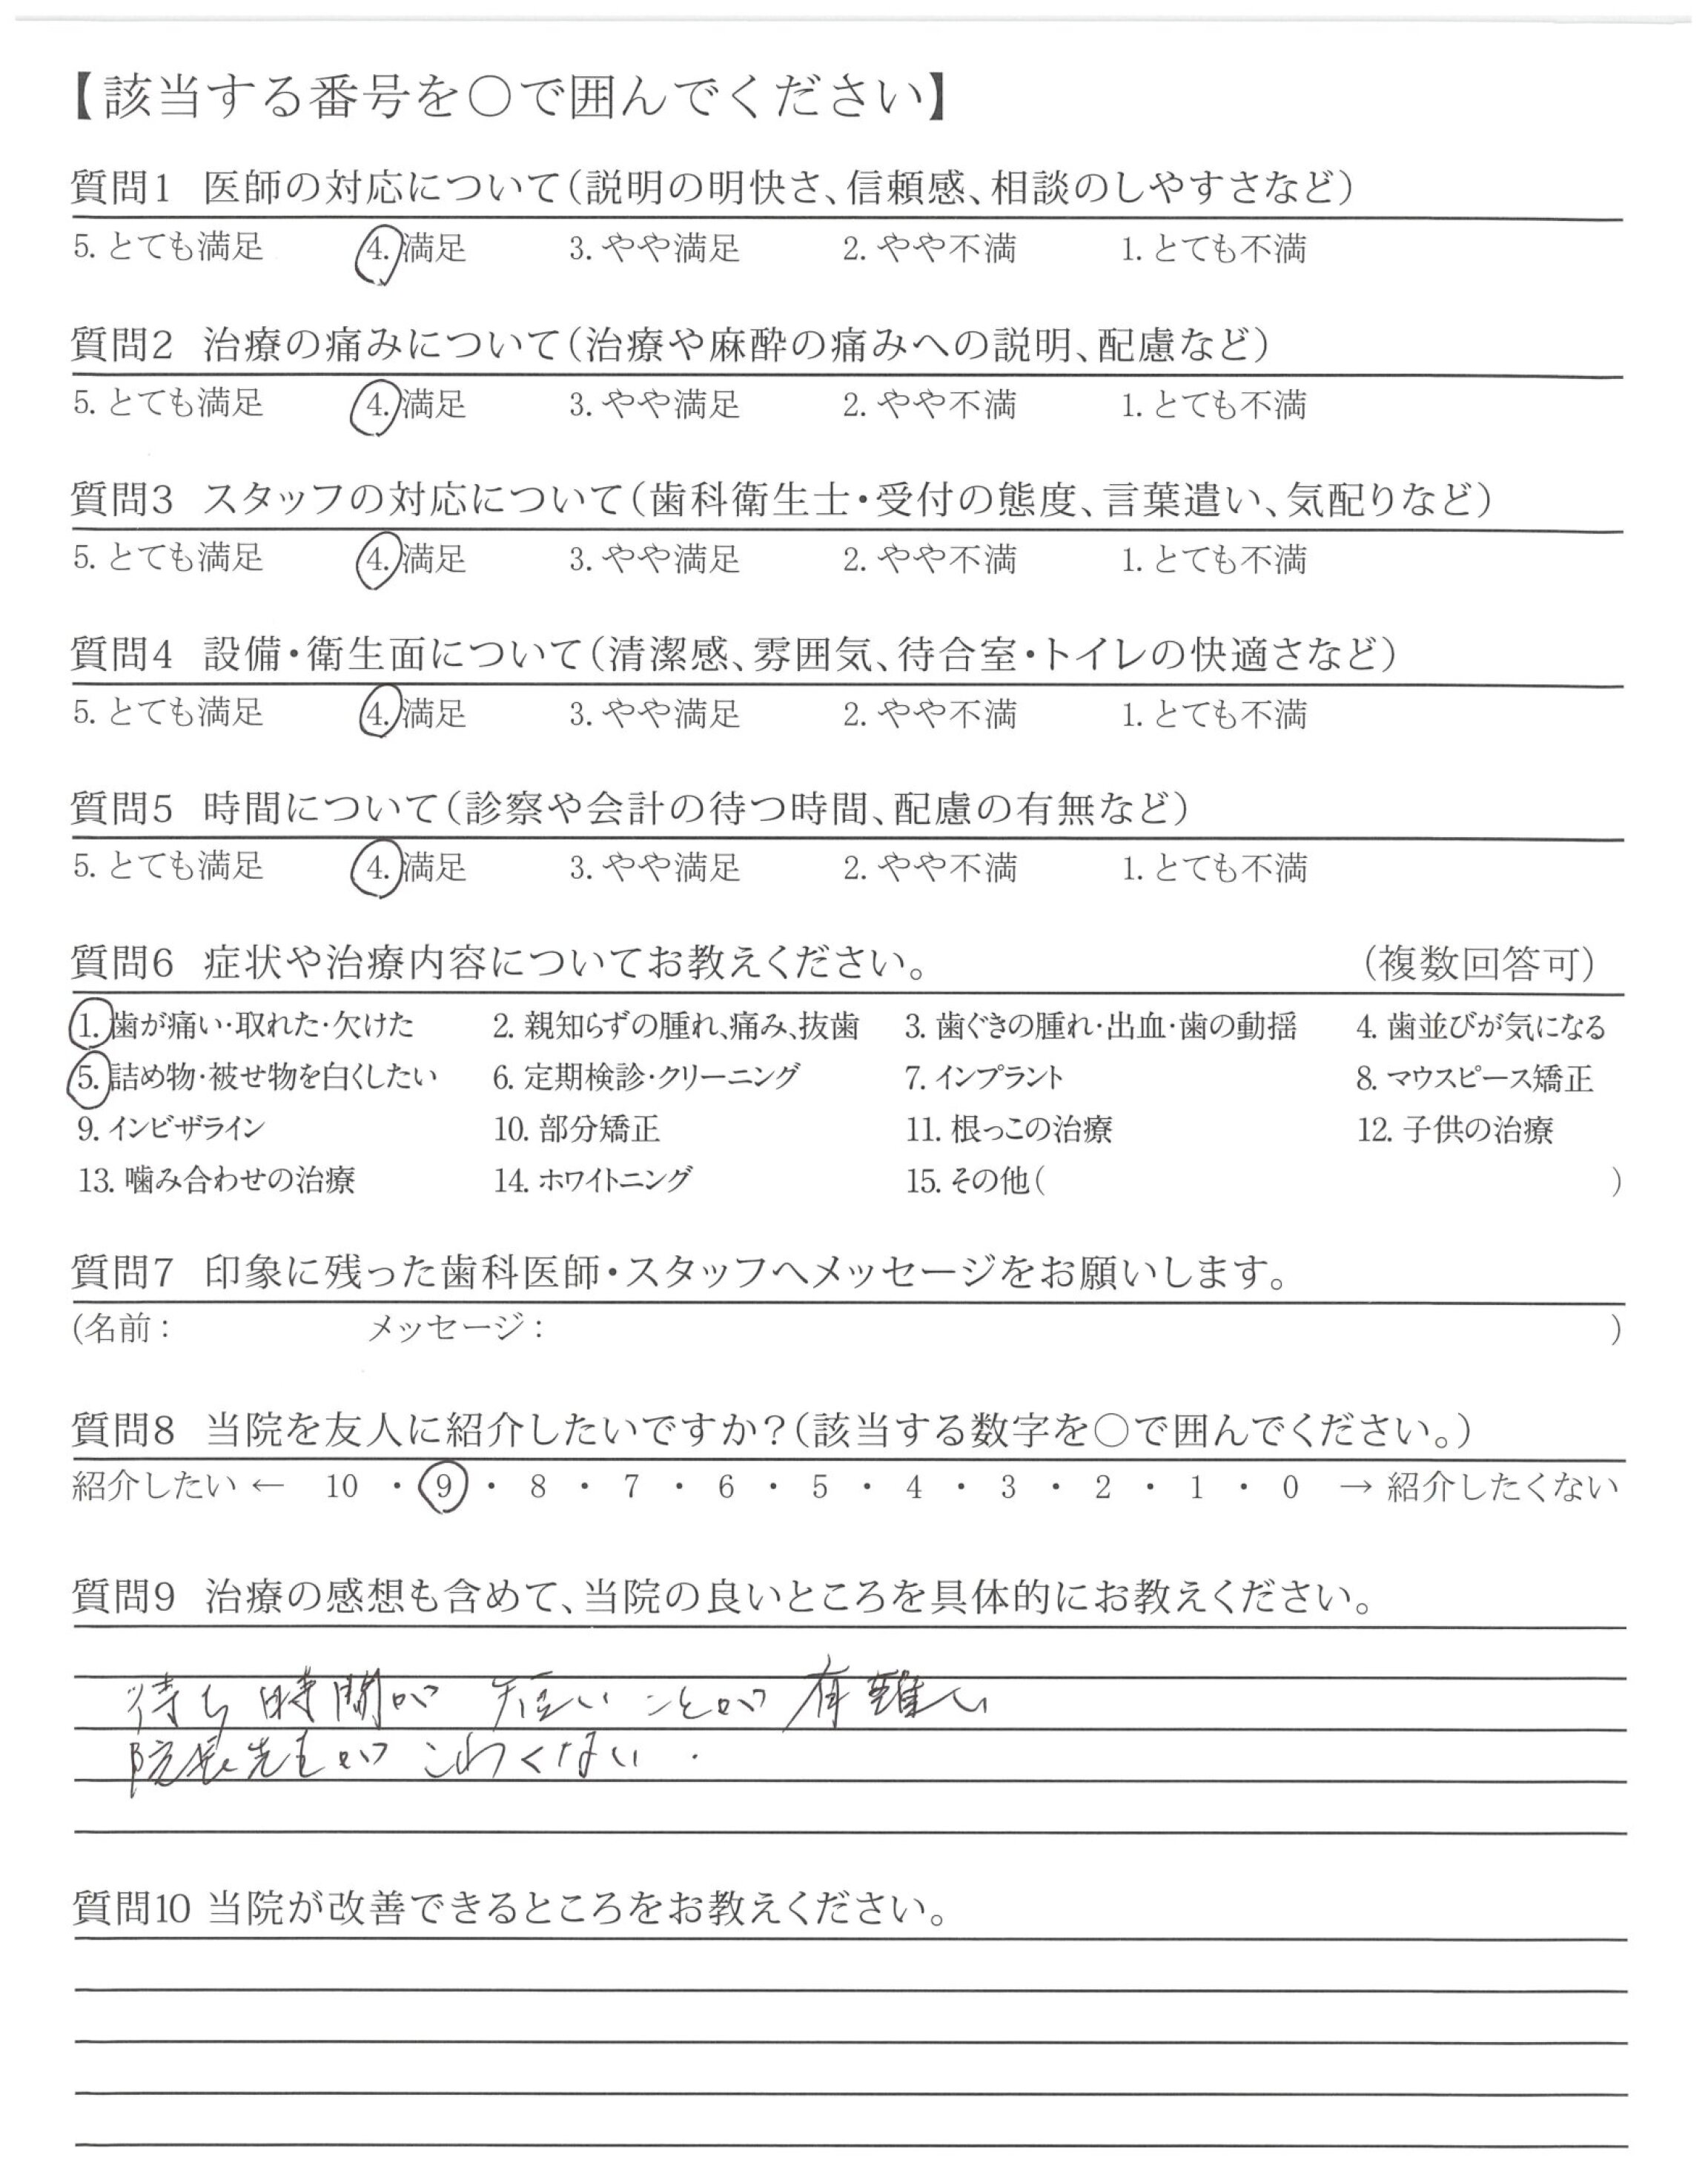 【該当する番号を○で囲んでください】
質問1 医師の対応について(説明の明快さ、信頼感、相談のしやすさなど)
5. とても満足 4. 満足 3. やや満足 2. やや不満 1. とても不満
質問2 治療の痛みについて(治療や麻酔の痛みへの説明、配慮など)
5. とても満足 4. 満足 3. やや満足 2. やや不満 1. とても不満
質問3 スタッフの対応について(歯科衛生士・受付の態度、言葉遣い、気配りなど)
5. とても満足 4. 満足 3. やや満足 2. やや不満 1. とても不満
質問4 設備・衛生面について(清潔感、雰囲気、待合室・トイレの快適さなど)
5. とても満足 4. 満足 3. やや満足 2. やや不満 1. とても不満
質問5 時間について(診察や会計の待つ時間、配慮の有無など)
5. とても満足 4. 満足 3. やや満足 2. やや不満 1. とても不満
質問6 症状や治療内容についてお教えください。 (複数回答可)
1. 歯が痛い・取れた・欠けた 2. 親知らずの腫れ、痛み、抜歯 3. 歯ぐきの腫れ・出血・歯の動揺 4. 歯並びが気になる
5. 詰め物・被せ物を白くしたい 6. 定期検診・クリーニング 7. インプラント 8. マウスピース矯正
9. インビザライン 10. 部分矯正 11. 根っこの治療 12. 子供の治療
13. 噛み合わせの治療 14. ホワイトニング 15. その他( )
質問7 印象に残った歯科医師・スタッフへメッセージをお願いします。
(名前: メッセージ: )
質問8 当院を友人に紹介したいですか?(該当する数字を○で囲んでください。)
紹介したい ← 10 ・ 9 ・ 8 ・ 7 ・ 6 ・ 5 ・ 4 ・ 3 ・ 2 ・ 1 ・ 0 → 紹介したくない
質問9 治療の感想も含めて、当院の良いところを具体的にお教えください。
待ち時間が 短いことが 有難い
院長先生が こわくない.
質問10 当院が改善できるところをお教えください。